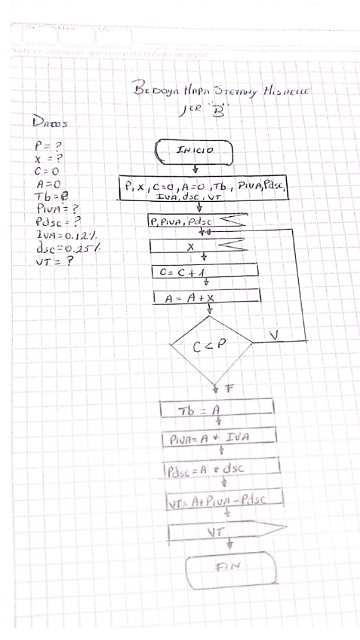 BEDOYA NAPA STEFANY MISHELLE
1ER "B"
DATOS
P = ?
X = ?
C = 0
A = 0
Tb = 0
PIVA = ?
Pdsc = ?
IVA = 0.12%
dsc = 0.25%
VT = ?
INICIO
P, X, C=0, A=0, Tb, PIVA, Pdsc,
IVA, dsc, VT
P, PIVA, Pdsc
X
C = C + 1
A = A + X
C < P
V
F
Tb = A
PIVA = A * IVA
Pdsc = A * dsc
VT = A + PIVA - Pdsc
VT
FIN